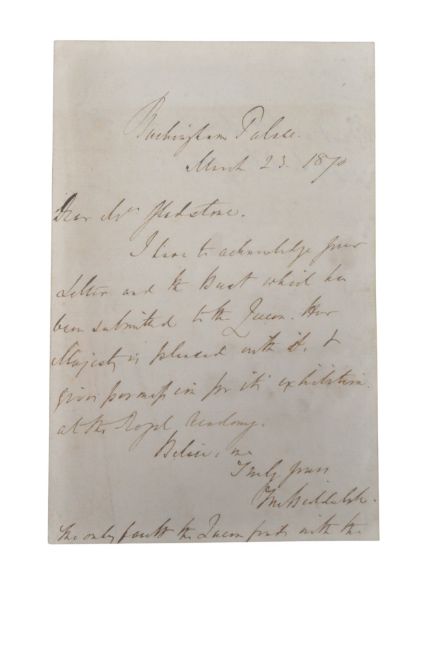 Buckingham Palace.
March 23 1870
Dear Mr Gladstone.
I have to acknowledge your
Letter and the Bust which has
been submitted to the Queen. Her
Majesty is pleased with it, &
gives permission for its exhibition
at the Royal Academy.
Believe me
Truly yours
The only fault the Queen finds with the